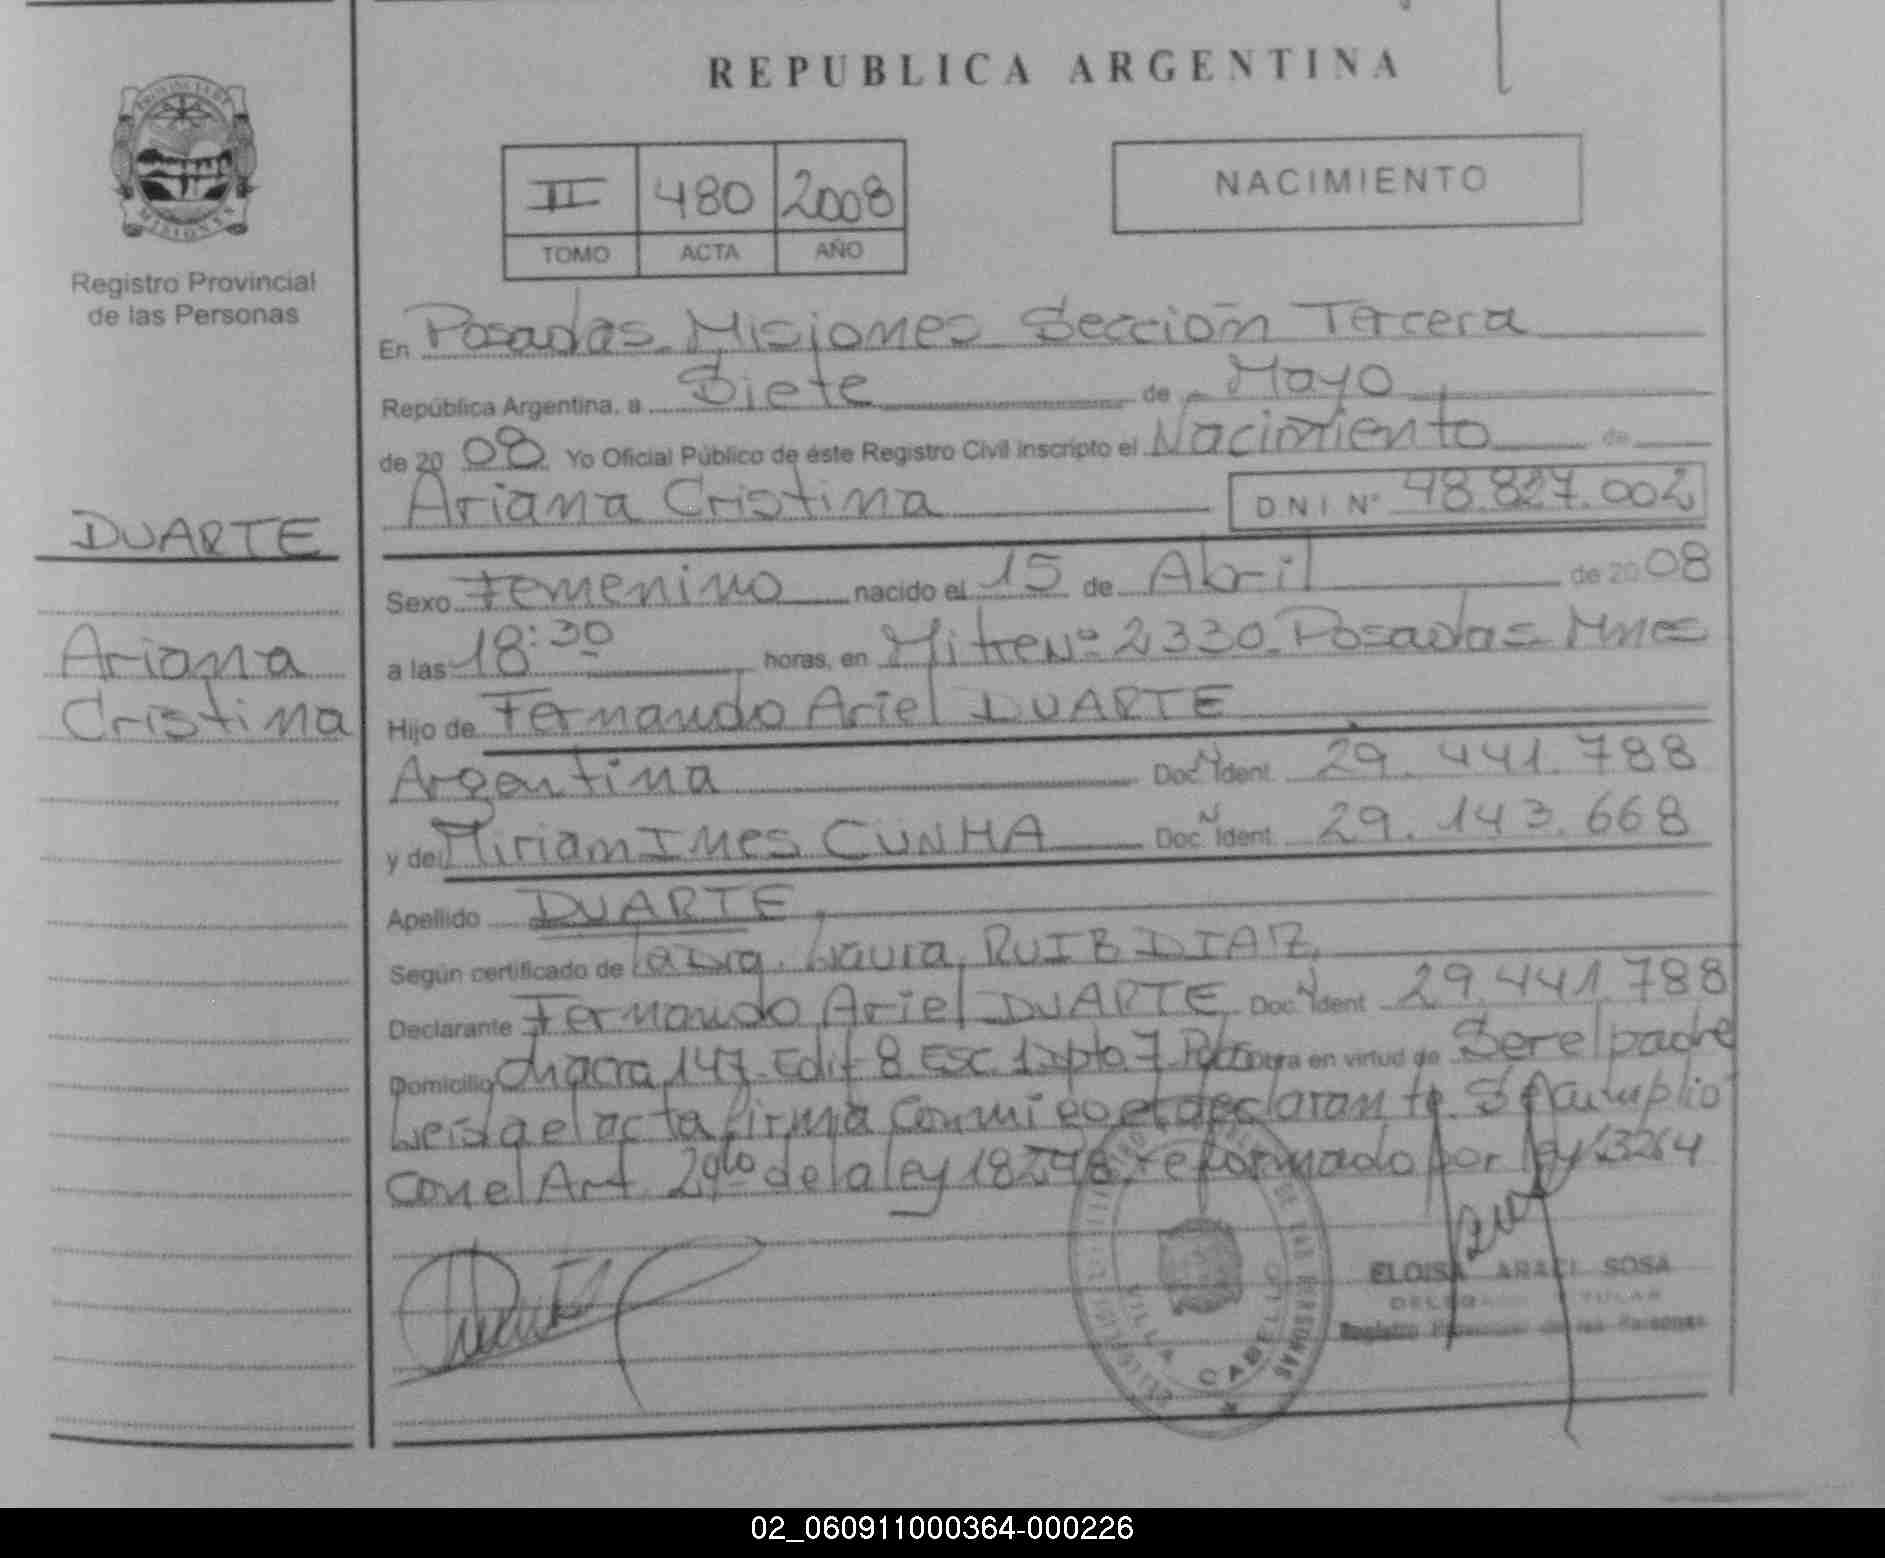 REPUBLICA ARGENTINA
PROVINCIA DE
MISIONES
Registro Provincial
de las Personas
II 480 2008
TOMO ACTA AÑO
NACIMIENTO
En Posadas Misiones Sección Tercera
República Argentina, a Siete de Mayo
de 2008 Yo Oficial Público de éste Registro Civil inscripto el Nacimiento de
Ariana Cristina DNI Nº 48.827.002
DUARTE
Ariana
Cristina
Sexo Femenino nacido el 15 de Abril de 2008
a las 18:30 horas, en Mitre Nº 2330 Posadas Mnes
Hijo de Fernando Ariel DUARTE
Argentina Doc. Ident. 29.441.788
y de Miriam Ines CUNHA Doc. Ident. 29.143.668
Apellido DUARTE,
Según certificado de la Dra. Laura, RUIZ DIAZ,
Declarante Fernando Ariel DUARTE Doc. Ident 29.441.788
Domicilio Chacra 147 Edif 8 Esc. 1 Dpto 7 Pdas obra en virtud de Ser el padre
Leida el acta firma conmigo el declarante. Se cumplio
con el Art 29to de la ley 18248 reformado por ley
VILLA CABELLO
ELOISA ARACI SOSA
Registro de las Personas
02_060911000364-000226